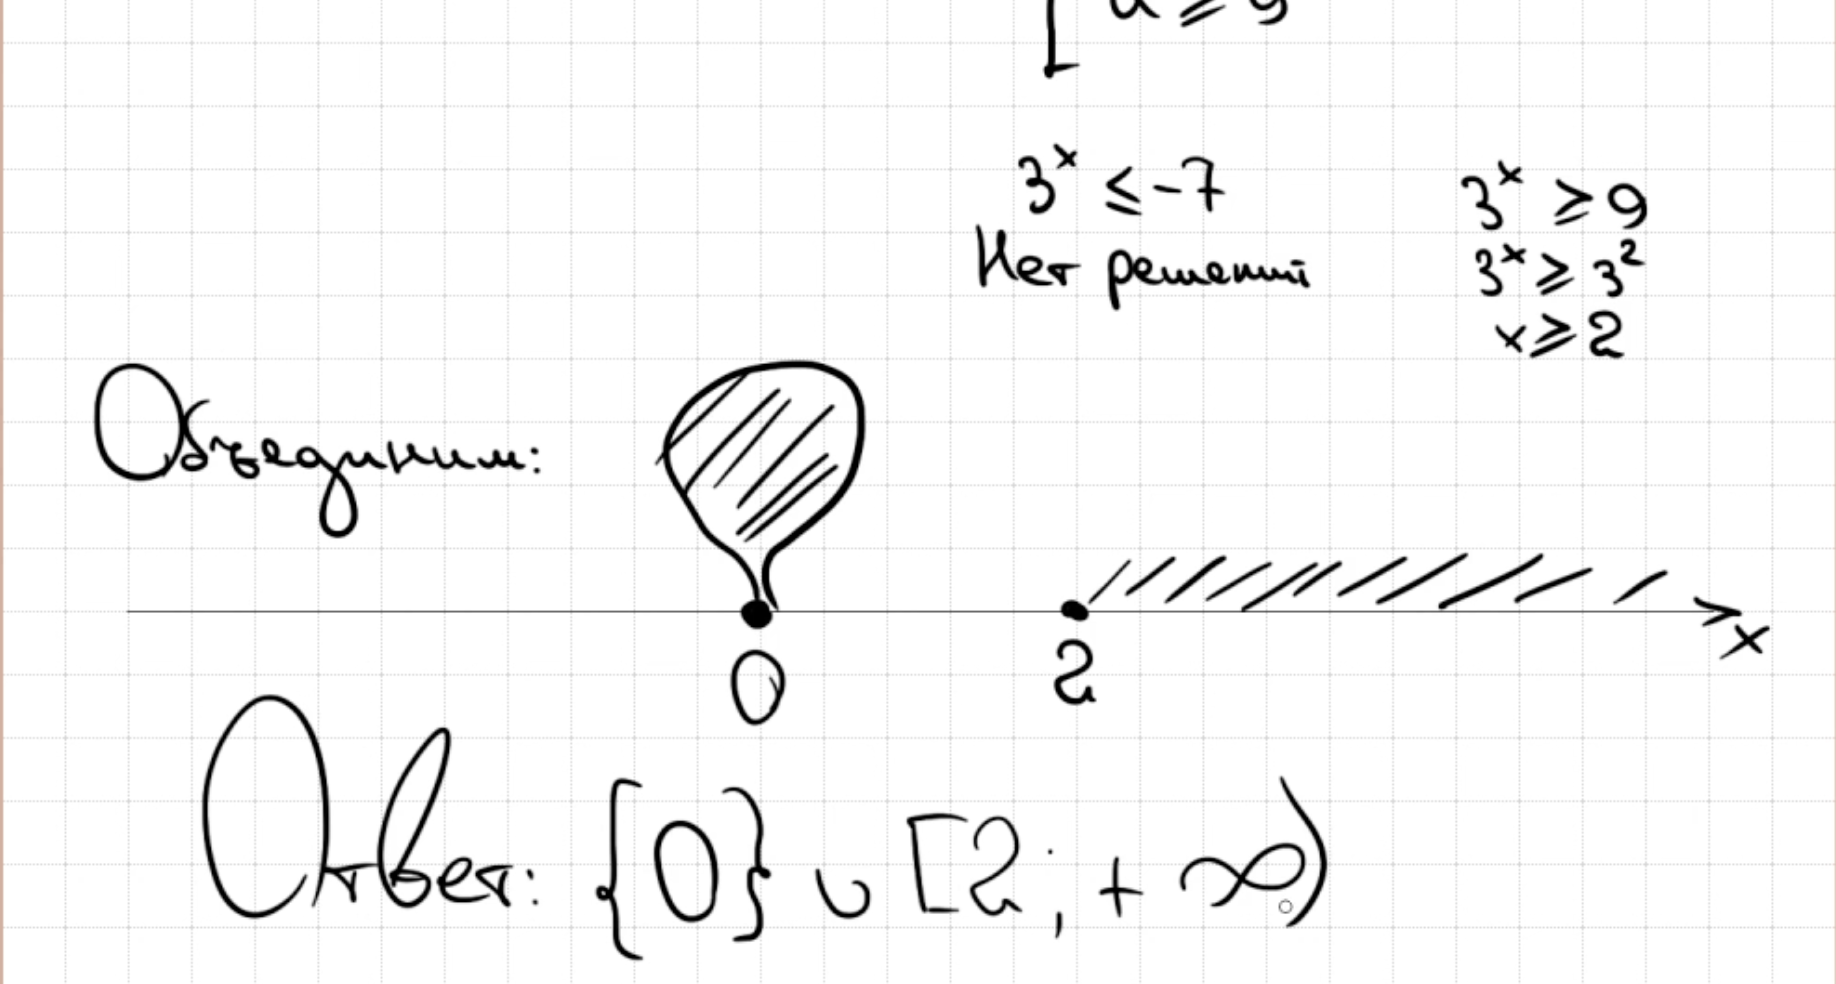 [ a ⩾ 9
3ˣ ⩽ -7
Нет решений
3ˣ ⩾ 9
3ˣ ⩾ 3²
x ⩾ 2
Объединим:
0 2 x
Ответ: {0} ∪ [2; +∞)